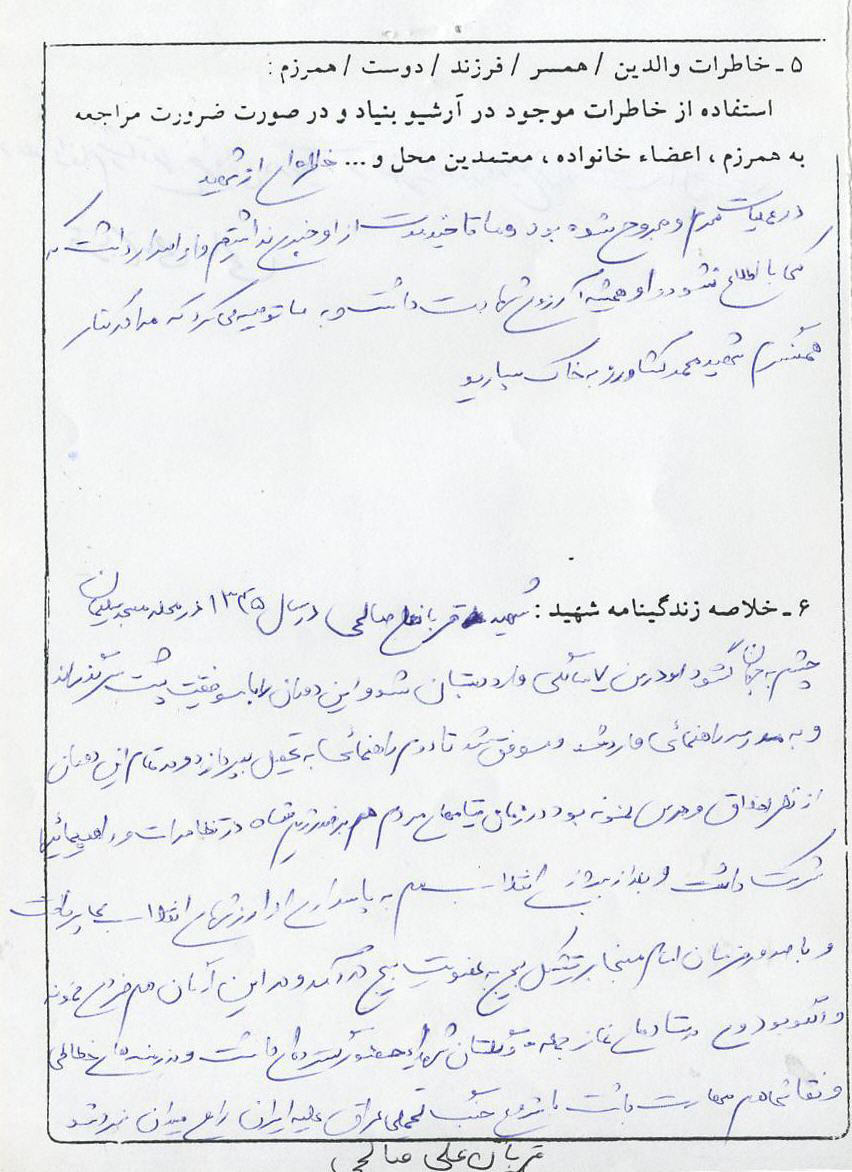 ۵ ـ خاطرات والدین / همسر / فرزند / دوست / همرزم :
استفاده از خاطرات موجود در آرشیو بنیاد و در صورت ضرورت مراجعه
به همرزم ، اعضاء خانواده ، معتمدین محل و ... خاطره‌ای از شهید
در عملیات محرم مجروح شده بود و ما تا چند مدت از او خبری نداشتیم و او اصرار داشت که
کسی با اطلاع نشود و او همیشه آرزوی شهادت داشت و به ما توصیه می‌کرد که مرا در کنار
همسنگرم شهید محمد کشاورز به خاک بسپارید
۶ ـ خلاصه زندگینامه شهید : شهید قربانعلی صالحی در سال ۱۳۴۵ در محله مسجد سلیمان
چشم به جهان گشود او در سن ۷ سالگی وارد دبستان شد و این دوران را با موفقیت پشت سر گذراند
و به مدرسه راهنمائی وارد شد و موفق شد تا دوم راهنمائی به تحصیل بپردازد و در تمام این دوران
از نظر اخلاق و درس نمونه بود در زمان قیامهای مردم هم بر ضد رژیم شاه در تظاهرات و راهپیمائیها
شرکت داشت و بعد از پیروزی انقلاب به پاسداری از ارزشهای انقلاب
و با صدور فرمان امام مبنی بر تشکیل بسیج به عضویت بسیج در آمد و در این هم فردی نمونه
و الگو بود وی در ستادهای نماز جمعه و گلستان شهدا حضور داشت و در زمینه‌های خطاطی
و نقاشی هم مهارت داشت با شروع جنگ تحمیلی عراق علیه ایران راهی میدان نبرد شد
قربان علی صالحی